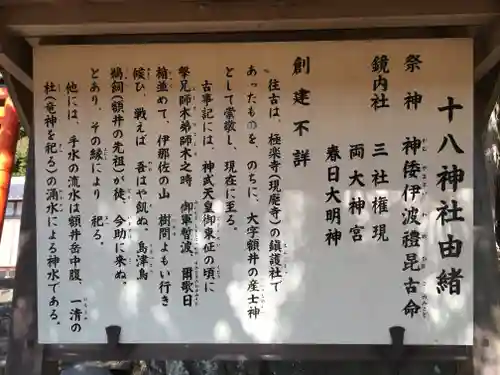 十八神社由緒
祭神 神倭伊波禮昆古命
鏡内社 三社権現
両大神宮
春日大明神
創建不詳
往古は、極楽寺(現廃寺)の鎮護社で
あったものを、のちに、大字額井の産土神
として崇敬し、現在に至る。
古事記には、神武天皇御東征の頃に
撃兄師木弟師木之時 御軍暫波、爾歌曰
楯並めて、伊那佐の山 樹間よもい行き
候ひ、戦えば 吾はや飢ぬ、島津鳥
鵜飼(額井の先祖)が徒、今助に来ぬ。
とあり、その縁により 祀る。
他には、手水の流水は額井岳中腹、一清の
杜(竜神を祀る)の湧水による神水である。